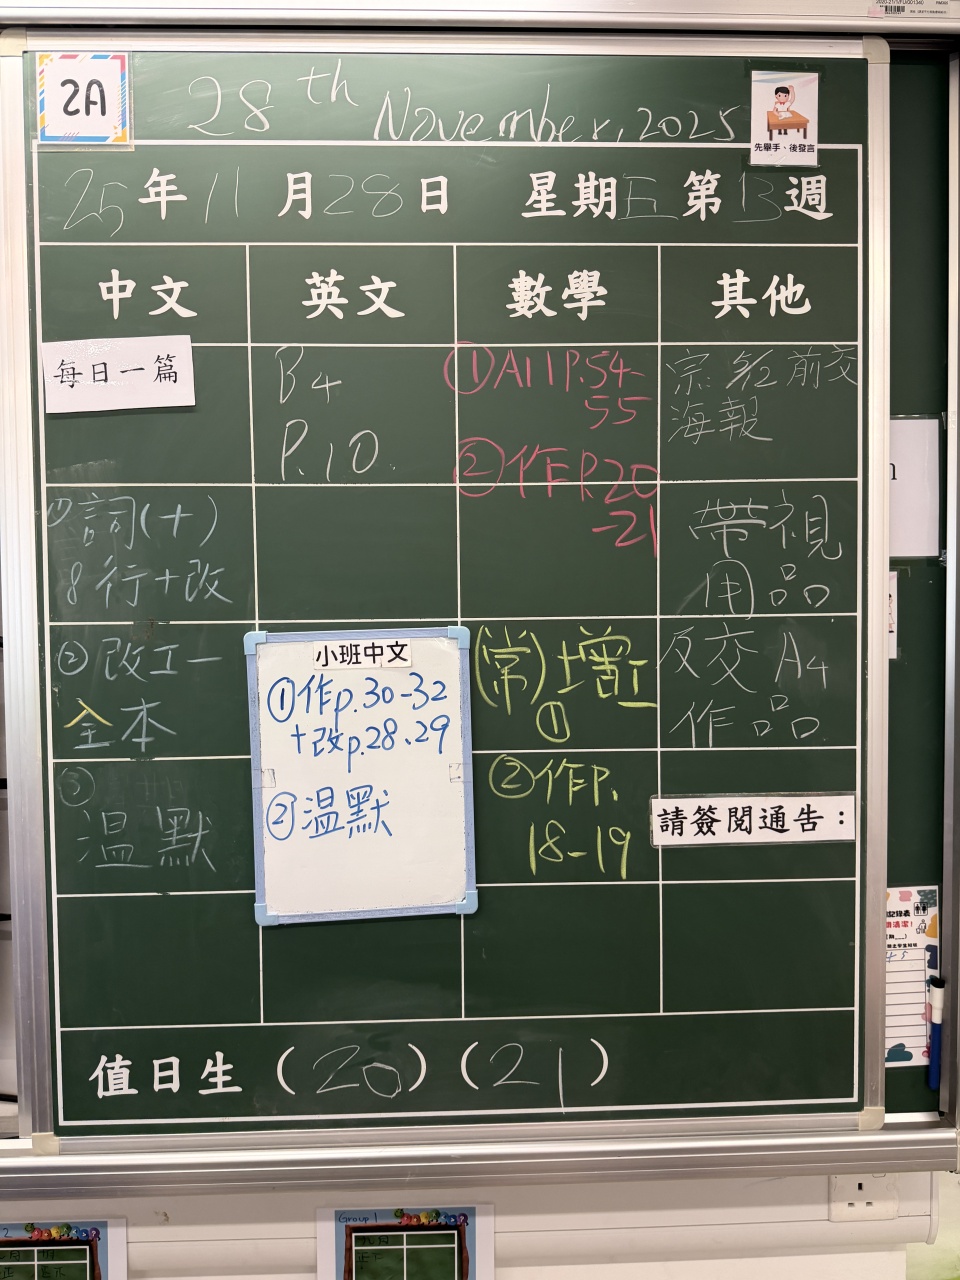 2A
28th November, 2025
先舉手、後發言
25年11月28日 星期五 第13週
中文 英文 數學 其他
每日一篇
① 詞(十)
8行+改
② 改工一
全本
③
溫默
B4
P.10.
小班中文
①作p.30-32
+改p.28、29
②溫默
①A11P.54-
55
②作P.20
-21
(常)增工
①
②作P.
18-19
宗 5/12 前交
海報
帶視
用品
反交 A4
作品.
請簽閱通告：
值日生 (20) (21)
Group 1